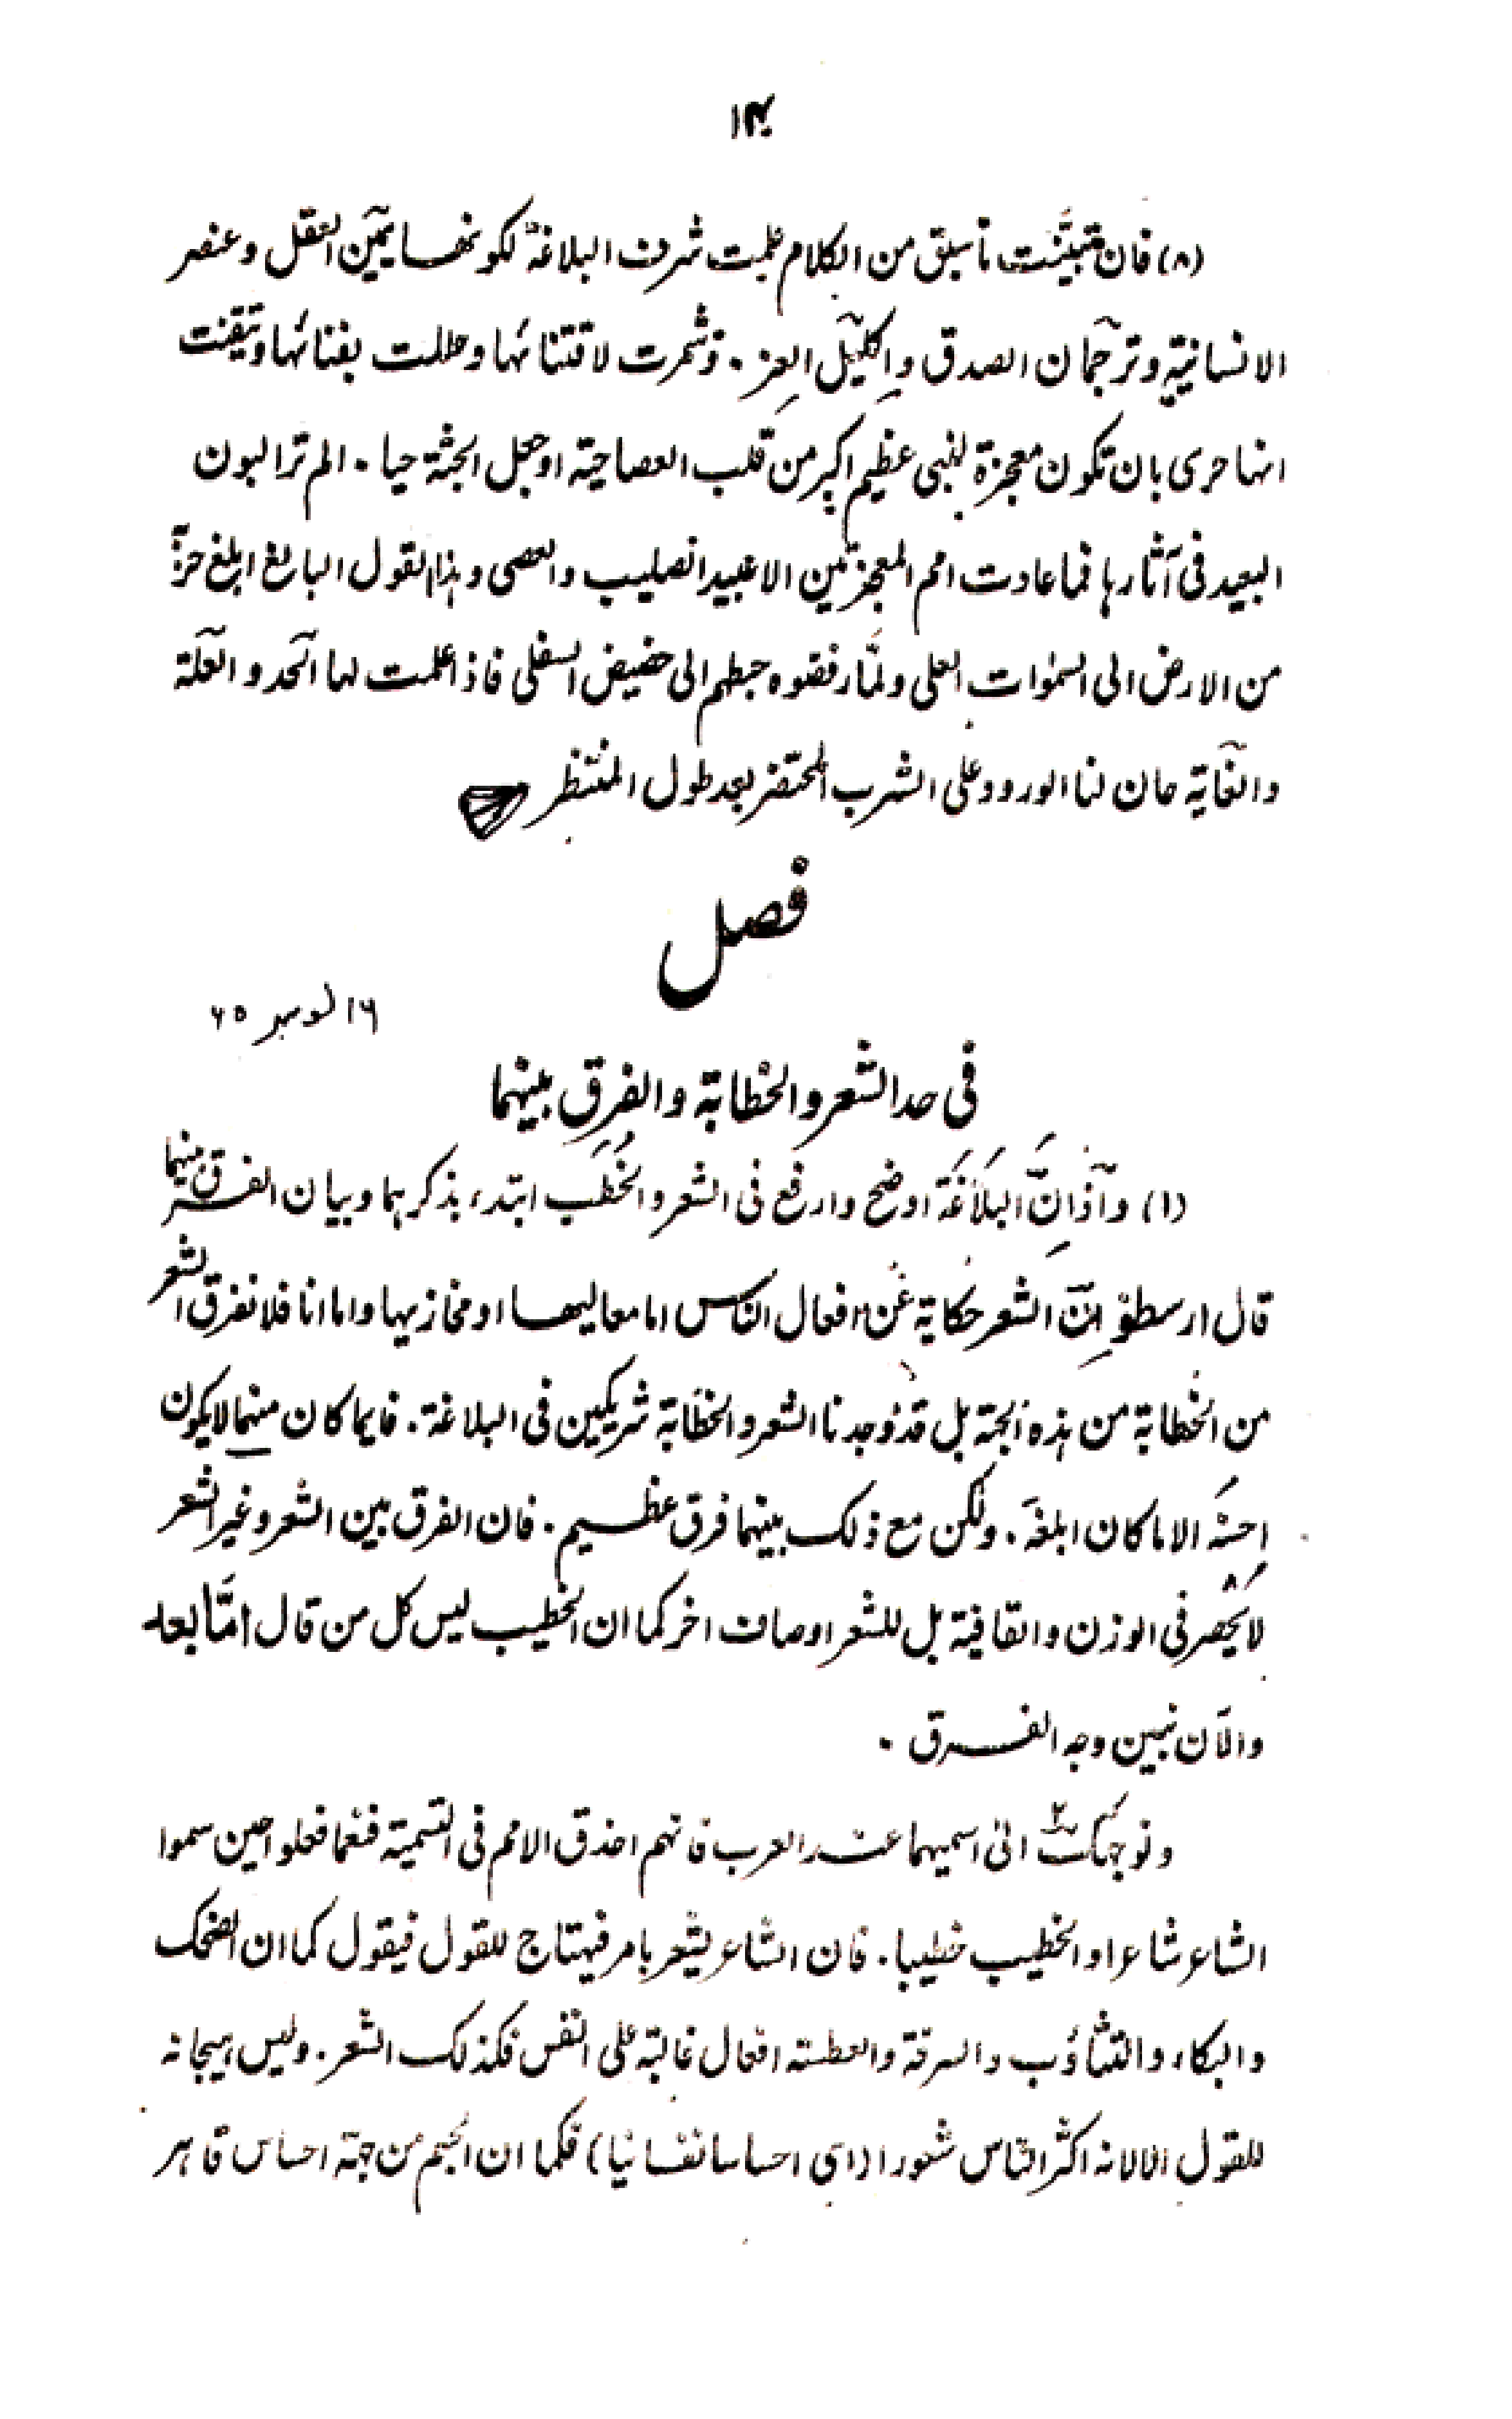 ۱۴
(۸) فان تبيَّنت ما سبق من الكلام علمت شرف البلاغة لكونها يمين العقل وعنصر
الانسانية وترجمان الصدق واكليل العز. فشمرت لاقتنائها وحللت بفنائها وتيقنت
انها حرى بان تكون معجزة لنبى عظيم اكبر من قلب العصا حية او جعل الجثة حيا. الم تر البون
البعيد فى آثارها فما عادت امم المعجزتين الا عبيد الصليب والعصى وهذا القول البالغ ابلغ حزبه
من الارض الى السمٰوات العلى ولمَّا رفضوه حطهم الى حضيض السفلى فاذا علمت لها الحد والعلة
والغاية حان لنا الورود على الشرب المحتضر بعد طول المنتظر
فصل
۱۶ نومبر ۶۵
فى حد الشعر والخطابة والفرق بينهما
(۱) وآذ اِنَّ البَلَاغَةَ اوضح وارفع فى الشعر والخُطَب ابتدء بذكرهما وبيان الفرق بينهما
قال ارسطو اِنّ الشعر حكاية عن افعال الناس اما معاليها او مخازيها واما انا فلا نفرق الشعر
من الخطابة من هذه الجهة بل قد وجدنا الشعر والخطابة شريكين فى البلاغة. فايما كان منهما لا يكون
احسنه الا ما كان ابلغه. ولكن مع ذلك بينهما فرق عظيم. فان الفرق بين الشعر وغير الشعر
لا ينحصر فى الوزن والقافية بل للشعر اوصاف اخر كما ان الخطيب ليس كل من قال امّا بعد
والآن نبين وجه الفرق.
ونوجهك الى اسميهما عند العرب فانهم احذق الامم فى التسمية فنعما فعلوا حين سموا
الشاعر شاعرا والخطيب خطيبا. فان الشاعر يشعر بامر فيهتاج للقول فيقول كما ان الضحك
والبكاء والتثاؤب والسرفة والعطسته افعال غالبة على النفس فكذلك الشعر. وليس هيجانه
للقول الا لانه اكثر الناس شعورا (اى احساسا نفسانيا) فكما ان الجسم من جهة احساس قاهر